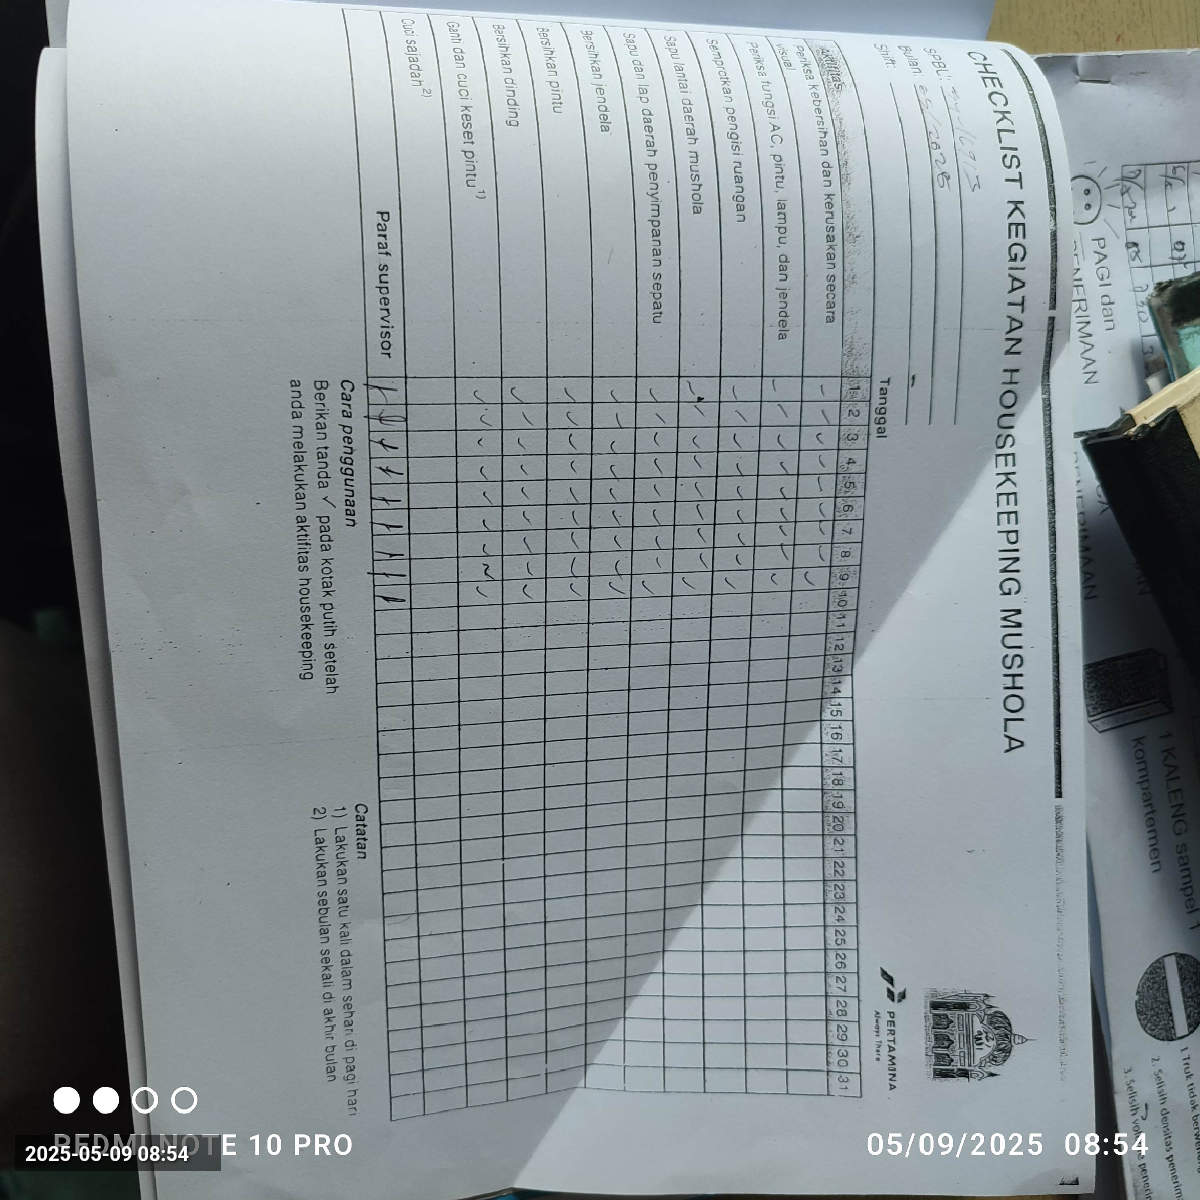 CHECKLIST KEGIATAN HOUSEKEEPING MUSHOLA
SPBU:
Bulan: 05/2025
Shift:
PERTAMINA
Always There
Tanggal
Aktifitas 1 2 3 4 5 6 7 8 9 10 11 12 13 14 15 16 17 18 19 20 21 22 23 24 25 26 27 28 29 30 31
Periksa kebersihan dan kerusakan secara
visual
Periksa fungsi AC, pintu, lampu, dan jendela
Semprotkan pengisi ruangan
Sapu lantai daerah mushola
Sapu dan lap daerah penyimpanan sepatu
Bersihkan jendela
Bersihkan pintu
Bersihkan dinding
Ganti dan cuci keset pintu 1)
Cuci sajadah 2)
Paraf supervisor
Cara penggunaan
Berikan tanda ✓ pada kotak putih setelah
anda melakukan aktifitas housekeeping
Catatan
1) Lakukan satu kali dalam sehari di pagi hari
2) Lakukan sebulan sekali di akhir bulan
PAGI dan
PENERIMAAN
PENERIMAAN
1 KALENG sampel
Kompartemen
1. Truk tidak
2. Selisih densitas
3. Selisih
REDMI NOTE 10 PRO
2025-05-09 08:54
05/09/2025 08:54